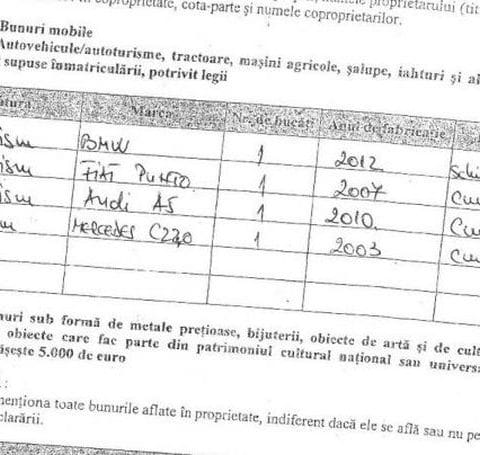 în coproprietate, cota-parte și numele coproprietarilor.
Bunuri mobile
Autovehicule/autoturisme, tractoare, mașini agricole, șalupe, iahturi și
supuse înmatriculării, potrivit legii
Marca Nr. de bucăți Anul de fabricație
BMW 1 2012
FIAT PUNTO 1 2007
Audi A5 1 2010
MERCEDES C220 1 2003
sub formă de metale prețioase, bijuterii, obiecte de artă și de
obiecte care fac parte din patrimoniul cultural național sau
5.000 de euro
toate bunurile aflate în proprietate, indiferent dacă ele se află sau nu pe